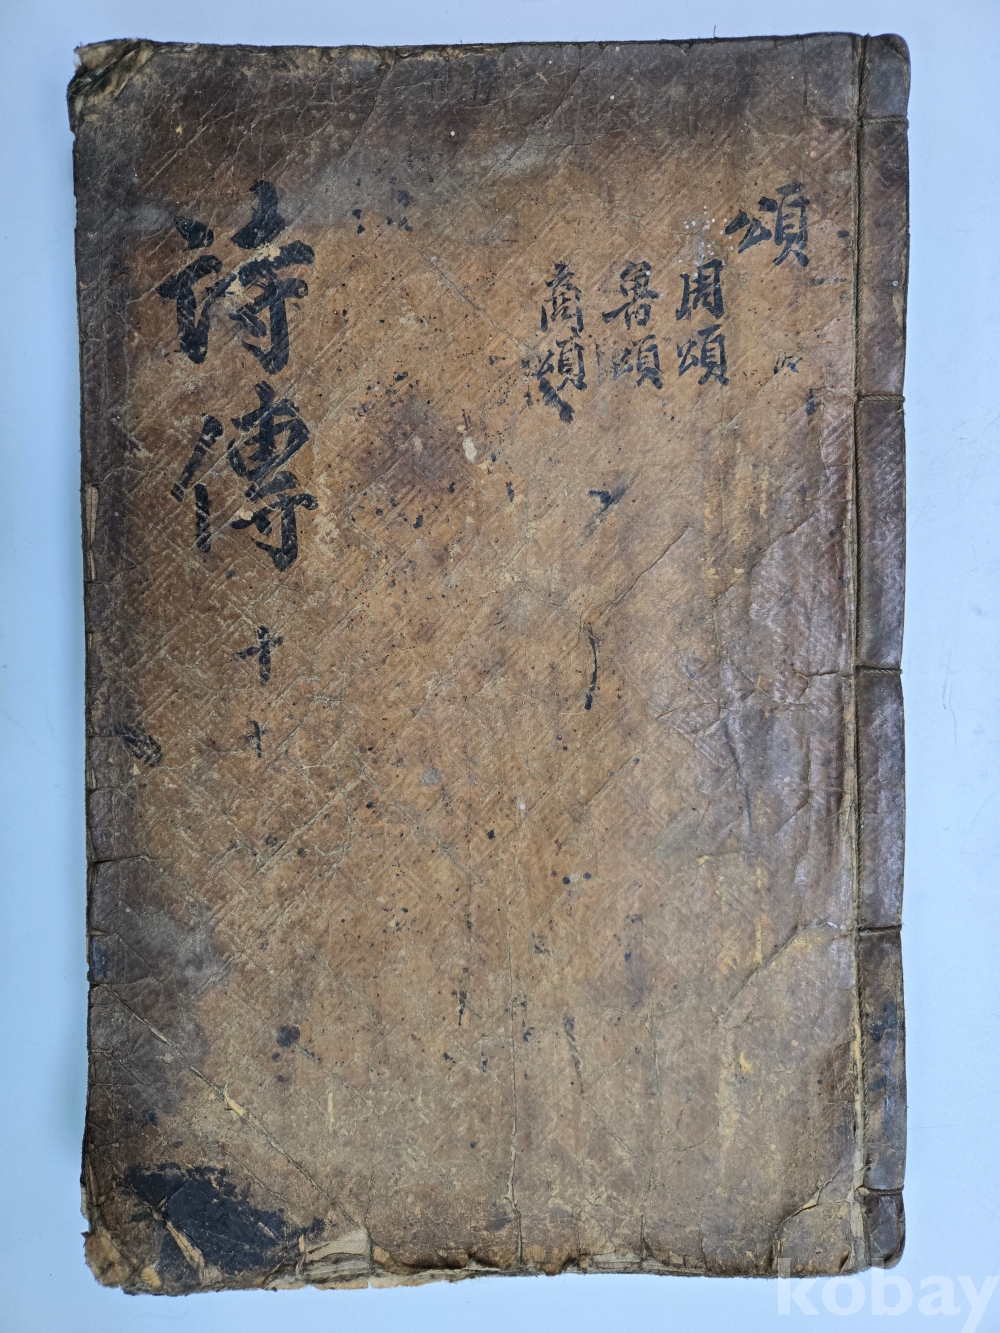 頌
周頌
魯頌
商頌
詩傳 十
十
kobay